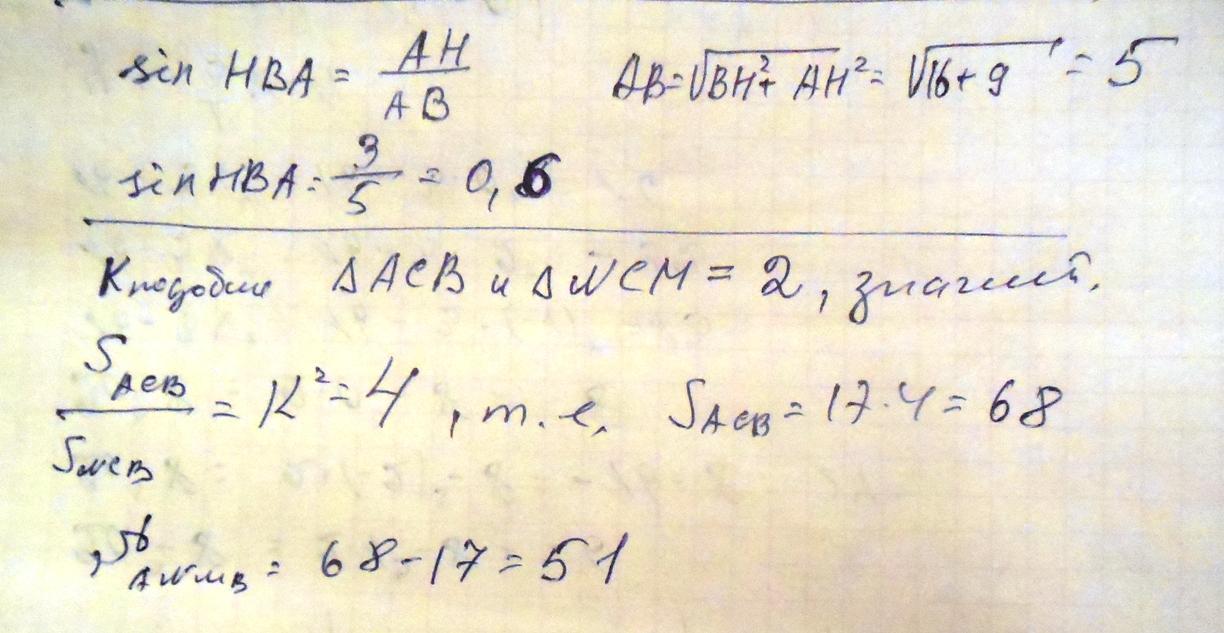 sin HBA = AH/AB AB=√BH²+AH²= √16+9 = 5
sin HBA = 3/5 = 0,6
К подобие ΔACB и ΔNCM = 2, значит.
S ACB / S NCB = K² = 4, т. е. S ACB = 17·4 = 68
S ANMB = 68-17 = 51